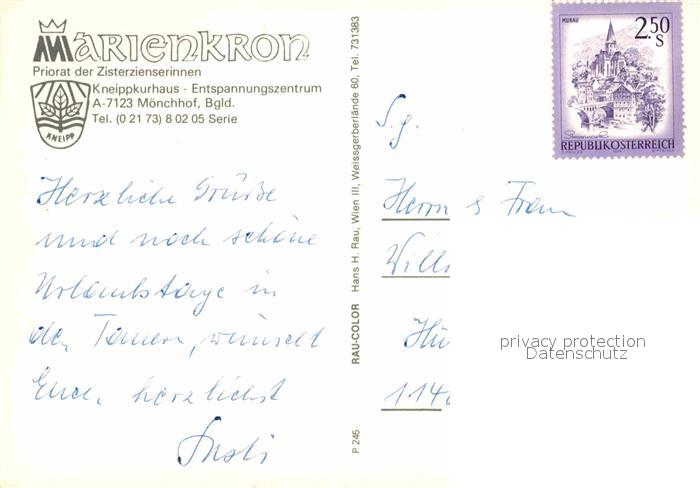 MARIENKRON
Priorat der Zisterzienserinnen
Kneippkurhaus - Entspannungszentrum
A-7123 Mönchhof, Bgld.
Tel. (0 21 73) 8 02 05 Serie
KNEIPP
Herzliche Grüße
und noch schöne
Urlaubstage in
den Tauern, wünscht
Euch herzlichst
P 245 RAU-COLOR Hans H. Rau, Wien III, Weissgerberlände 60, Tel. 731383
MURAU
2.50
S
REPUBLIK ÖSTERREICH
S.g.
Herrn & Frau
Willi
Hü
114
privacy protection
Datenschutz